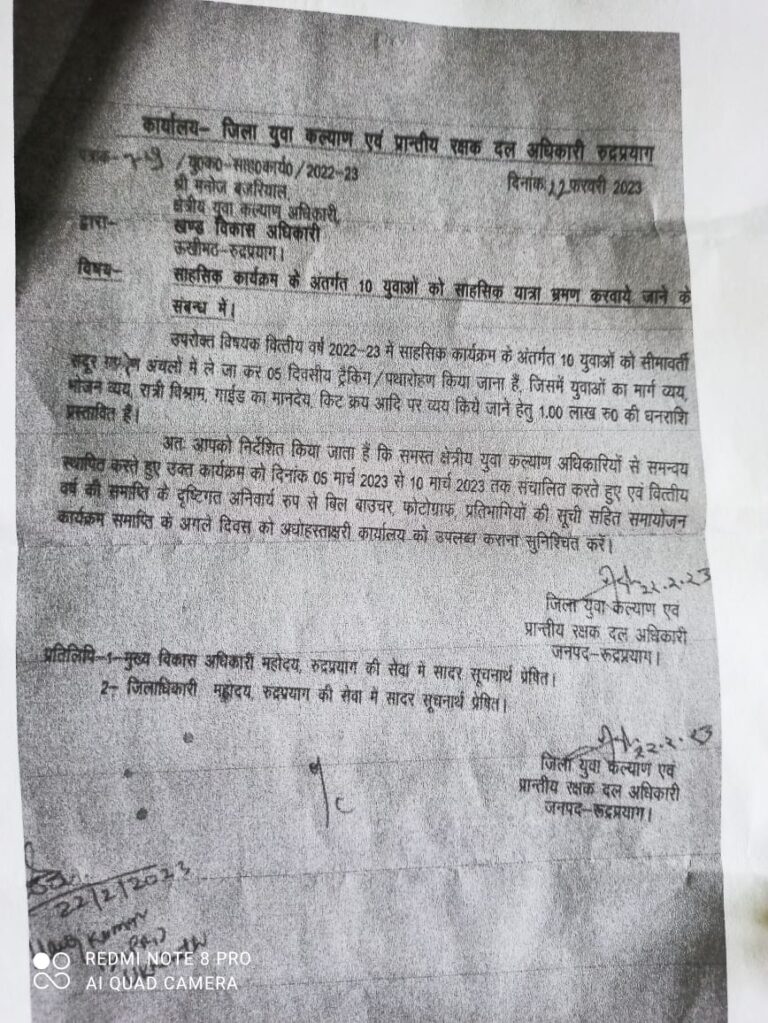 कार्यालय- जिला युवा कल्याण एवं प्रान्तीय रक्षक दल अधिकारी रुद्रप्रयाग
/यु0क0-सा0कार्य0/2022-23 दिनांक 22 फरवरी 2023
श्री मनोज बजरियाल,
क्षेत्रीय युवा कल्याण अधिकारी,
द्वारा- खण्ड विकास अधिकारी
ऊखीमठ-रुद्रप्रयाग।
विषय- साहसिक कार्यक्रम के अंतर्गत 10 युवाओं को साहसिक यात्रा भ्रमण करवाये जाने के
संबन्ध में।
उपरोक्त विषयक वित्तीय वर्ष 2022-23 में साहसिक कार्यक्रम के अंतर्गत 10 युवाओं को सीमावर्ती
सदूर अंचलों में ले जा कर 05 दिवसीय ट्रैकिंग/पथारोहण किया जाना हैं, जिसमें युवाओं का मार्ग व्यय,
भोजन व्यय, रात्री विश्राम, गाईड का मानदेय, किट क्रय आदि पर व्यय किये जाने हेतु 1.00 लाख रु0 की धनराशि
प्रस्तावित हैं।
अतः आपको निर्देशित किया जाता हैं कि समस्त क्षेत्रीय युवा कल्याण अधिकारियों से समन्वय
स्थापित करते हुए उक्त कार्यक्रम को दिनांक 05 मार्च 2023 से 10 मार्च 2023 तक संचालित करते हुए एवं वित्तीय
वर्ष की समाप्ति के दृष्टिगत अनिवार्य रुप से बिल बाउचर, फोटोग्राफ, प्रतिभागियों की सूची सहित समायोजन
कार्यक्रम समाप्ति के अगले दिवस को अधोहस्ताक्षरी कार्यालय को उपलब्ध कराना सुनिश्चित करें।
22.2.23
जिला युवा कल्याण एवं
प्रान्तीय रक्षक दल अधिकारी
जनपद-रुद्रप्रयाग।
प्रतिलिपि-1-मुख्य विकास अधिकारी महोदय, रुद्रप्रयाग की सेवा में सादर सूचनार्थ प्रेषित।
2- जिलाधिकारी महोदय, रुद्रप्रयाग की सेवा में सादर सूचनार्थ प्रेषित।
22.2.23
जिला युवा कल्याण एवं
प्रान्तीय रक्षक दल अधिकारी
जनपद-रुद्रप्रयाग।
22/2/2023
Kumar
REDMI NOTE 8 PRO
AI QUAD CAMERA